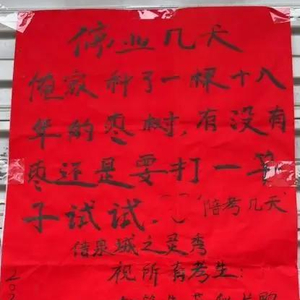 停业几天
俺家种了一棵十八
年的枣树,有没有
枣还是要打一竿
子试试。
(陪考几天
视所有考生:
202